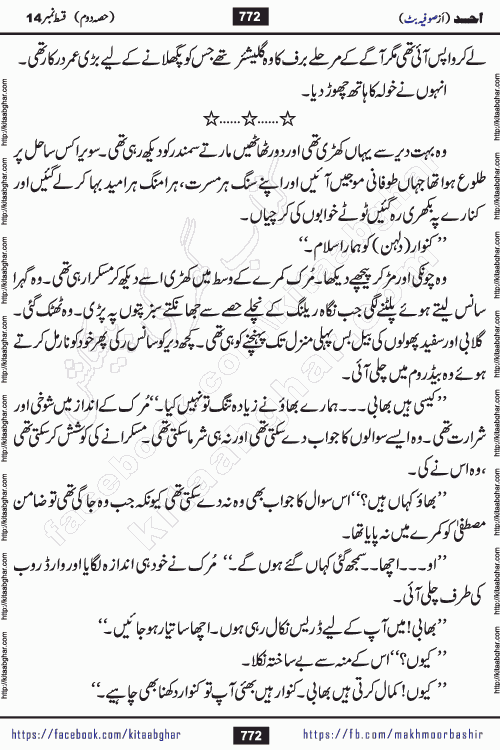 احد (از صوفیہ بٹ) 772 (حصہ دوم) قسط نمبر 14
لے کر واپس آئی تھی مگر آگے کے مرحلے برف کا وہ گلیشئر تھے جس کو پگھلانے کے لیے بڑی عمر درکار تھی۔
انہوں نے خولہ کا ہاتھ چھوڑ دیا۔
☆......☆......☆
وہ بہت دیر سے یہاں کھڑی تھی اور دور ٹھاٹھیں مارتے سمندر کو دیکھ رہی تھی۔ سویرا کس ساحل پر
طلوع ہوا تھا جہاں طوفانی موجیں آئیں اور اپنے سنگ ہر مسرت، ہر امنگ ہر امید بہا کر لے گئیں اور
کنارے پہ بکھری رہ گئیں ٹوٹے خوابوں کی کرچیاں۔
’’کنوار (دلہن) کو ہمارا سلام۔‘‘
وہ چونکی اور مڑ کر پیچھے دیکھا۔ مُرک کمرے کے وسط میں کھڑی اسے دیکھ کر مسکرا رہی تھی۔ وہ گہرا
سانس لیتے ہوئے پلٹنے لگی جب نگاہ ریلنگ کے نچلے حصے سے جھانکتے سبز پتوں پہ پڑی۔ وہ ٹھٹک گئی۔
گلابی اور سفید پھولوں کی بیل بس پہلی منزل تک پہنچنے کو ہی تھی۔ کچھ دیر کو سانس رکی پھر خود کو نارمل کرتے
ہوئے وہ بیڈ روم میں چلی آئی۔
’’کیسی ہیں بھابی۔۔۔ ہمارے بھاؤ نے زیادہ تنگ تو نہیں کیا۔‘‘ مُرک کے انداز میں شوخی اور
شرارت تھی۔ وہ ایسے سوالوں کا جواب دے سکتی تھی اور نہ ہی شرما سکتی تھی۔ مسکرانے کی کوشش کر سکتی تھی
،وہ اس نے کی۔
’’بھاؤ کہاں ہیں؟‘‘ اس سوال کا جواب بھی وہ نہ دے سکتی تھی کیونکہ جب وہ جاگی تھی تو ضامن
مصطفیٰ کو کمرے میں نہ پایا تھا۔
’’او۔۔۔ اچھا۔۔ سمجھ گئی کہاں گئے ہوں گے۔‘‘ مُرک نے خود ہی اندازہ لگایا اور وارڈ روب
کی طرف چلی آئی۔
’’بھابی! میں آپ کے لیے ڈریس نکال رہی ہوں۔ اچھا سا تیار ہو جائیں۔‘‘
’’کیوں؟‘‘ اس کے منہ سے بے ساختہ نکلا۔
’’کیوں! کمال کرتی ہیں بھابی۔ کنوار ہیں بھئی آپ تو کنوار دکھنا بھی چاہیے۔‘‘
https://facebook.com/kitaabghar 772 https://fb.com/makhmoorbashir
http://kitaabghar.com
کتاب گھر کی پیشکش
kitaabghar.com
facebook.com/kitaabghar